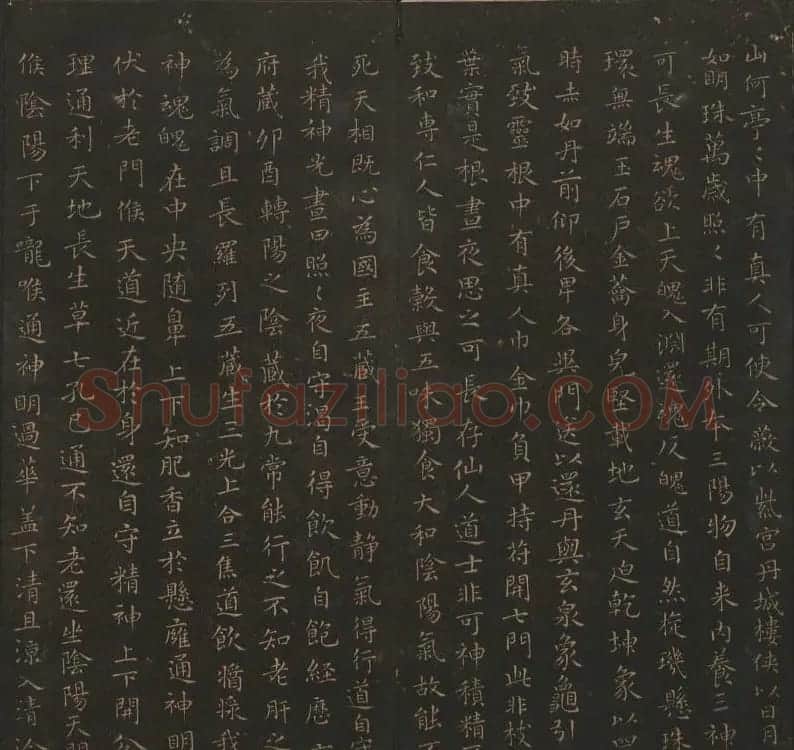 山何亭〻中有真人可使令蔽以紫宮丹城樓俠以日月
如眀珠萬歲照〻非有期外本三陽物自来内養三神
可長生魂欲上天魄入淵還魂反魄道自然㨔璣懸珠
環無端玉石戶金蘥身完堅載地玄天迫乾坤象以四
時赤如丹前仰後卑各異門送以還丹與玄泉象龜引
氣致靈根中有真人巾金巾負甲持符開七門此非枝
葉實是根晝夜思之可長存仙人道士非可神積精
致和専仁人皆食穀與五味獨食大和陰陽氣故能
死天相既心為國主五藏王受意動静氣得行道自守
我精神光晝日照〻夜自守渴自得飲飢自飽経歷
府藏卯酉轉陽之陰藏於九常能行之不知老肝之
為氣調且長羅列五蔵生三光上合三焦道飲醬𣼛我
神魂魄在中央随鼻上下知肥香立於懸廱通神眀
伏於老門候天道近在於身還自守精神上下開分
理通利天地長生草七孔已通不知老還坐陰陽天門
候陰陽下于嚨喉通神眀過華盖下清且涼入清泠
Shufaziliao.com